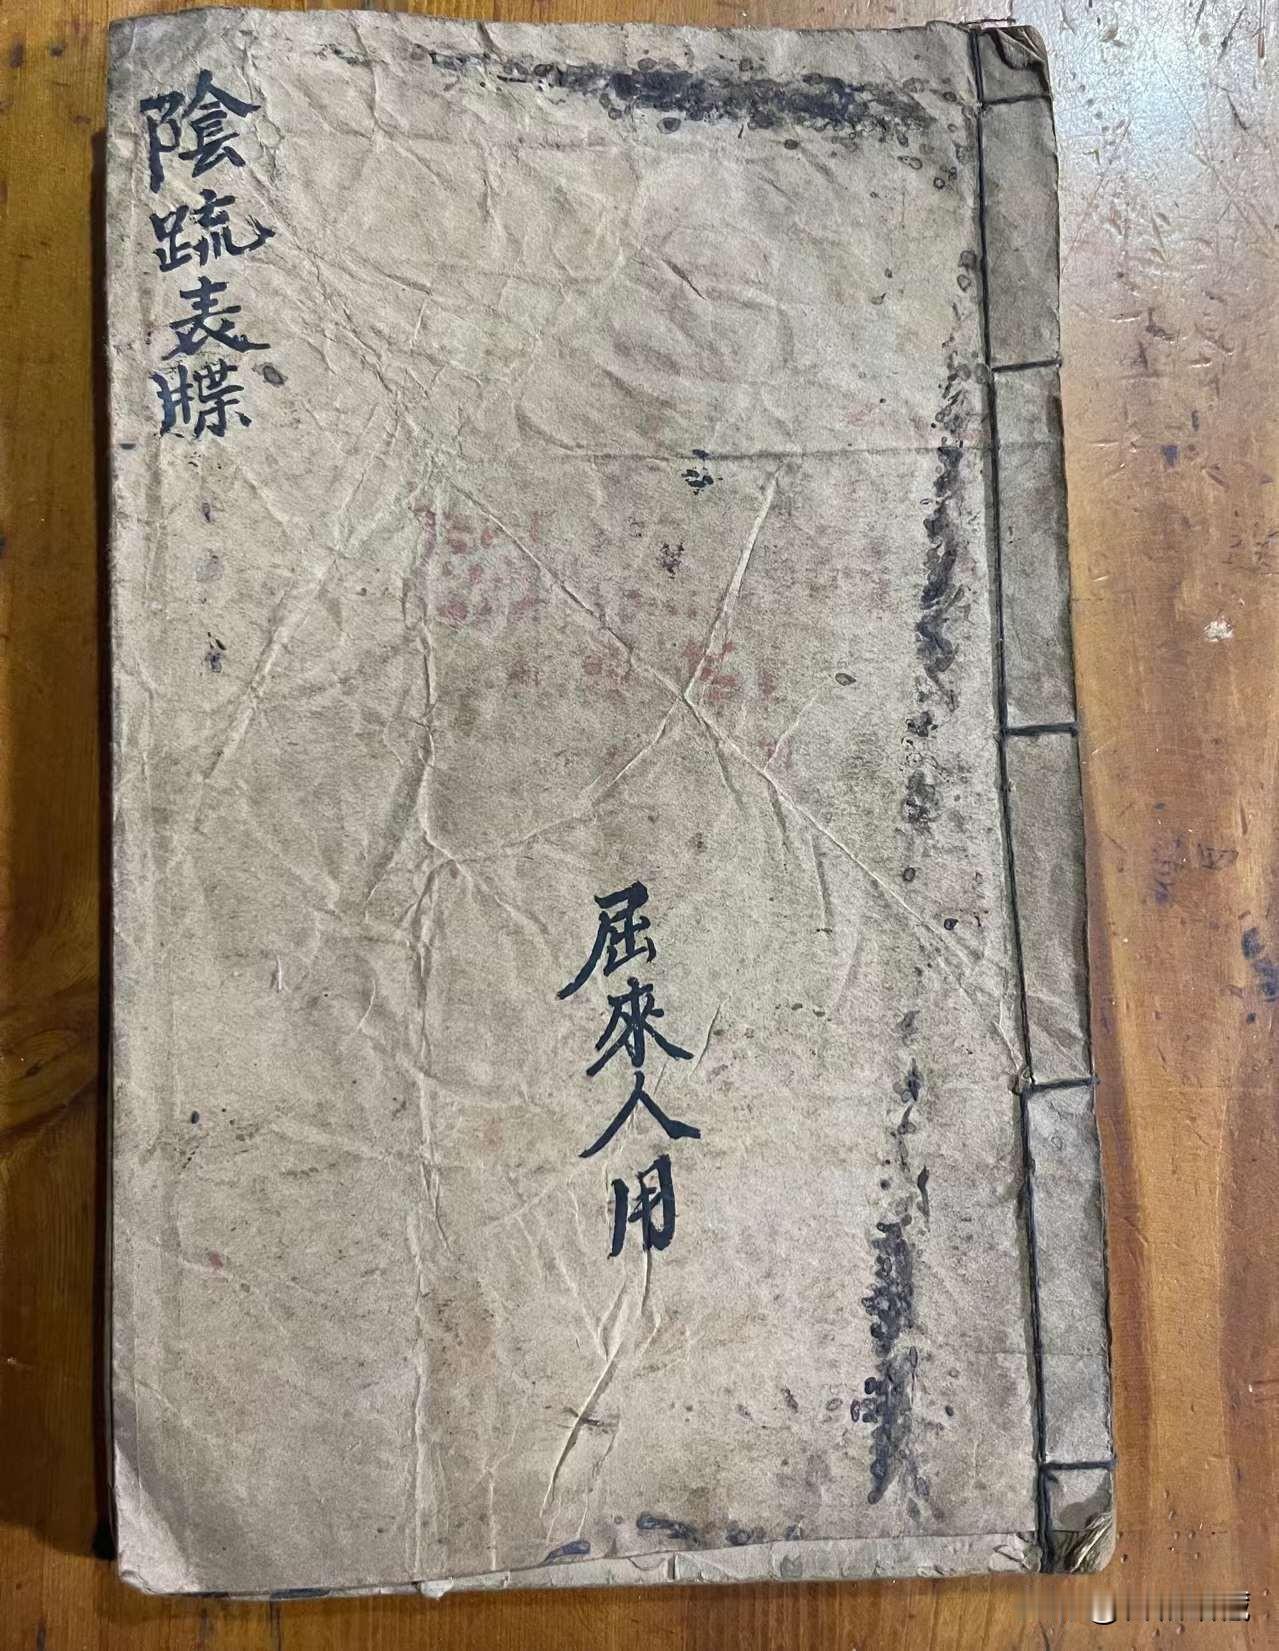 陰疏表牒
屈來人用